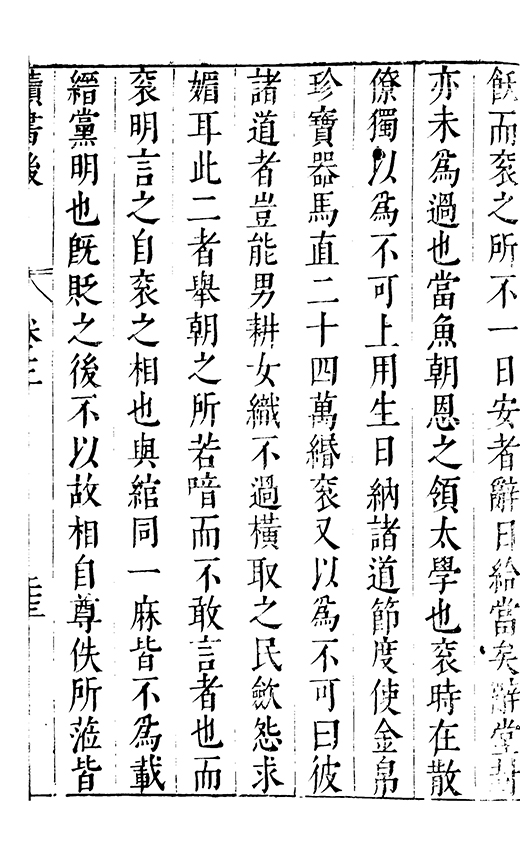 旣而衮之所不一日安者辭日給當矣辭堂封
亦未爲過也當魚朝恩之領太學也衮時在散
僚獨以爲不可上用生日納諸道節度使金帛
珍寶器馬直二十四萬緡衮又以爲不可曰彼
諸道者豈能男耕女織不過橫取之民斂怨求
媚耳此二者舉朝之所若喑而不敢言者也而
衮明言之自衮之相也與綰同一麻皆不爲載
縉黨明也旣貶之後不以故相自尊佚所蒞皆
讀書後 卷之三